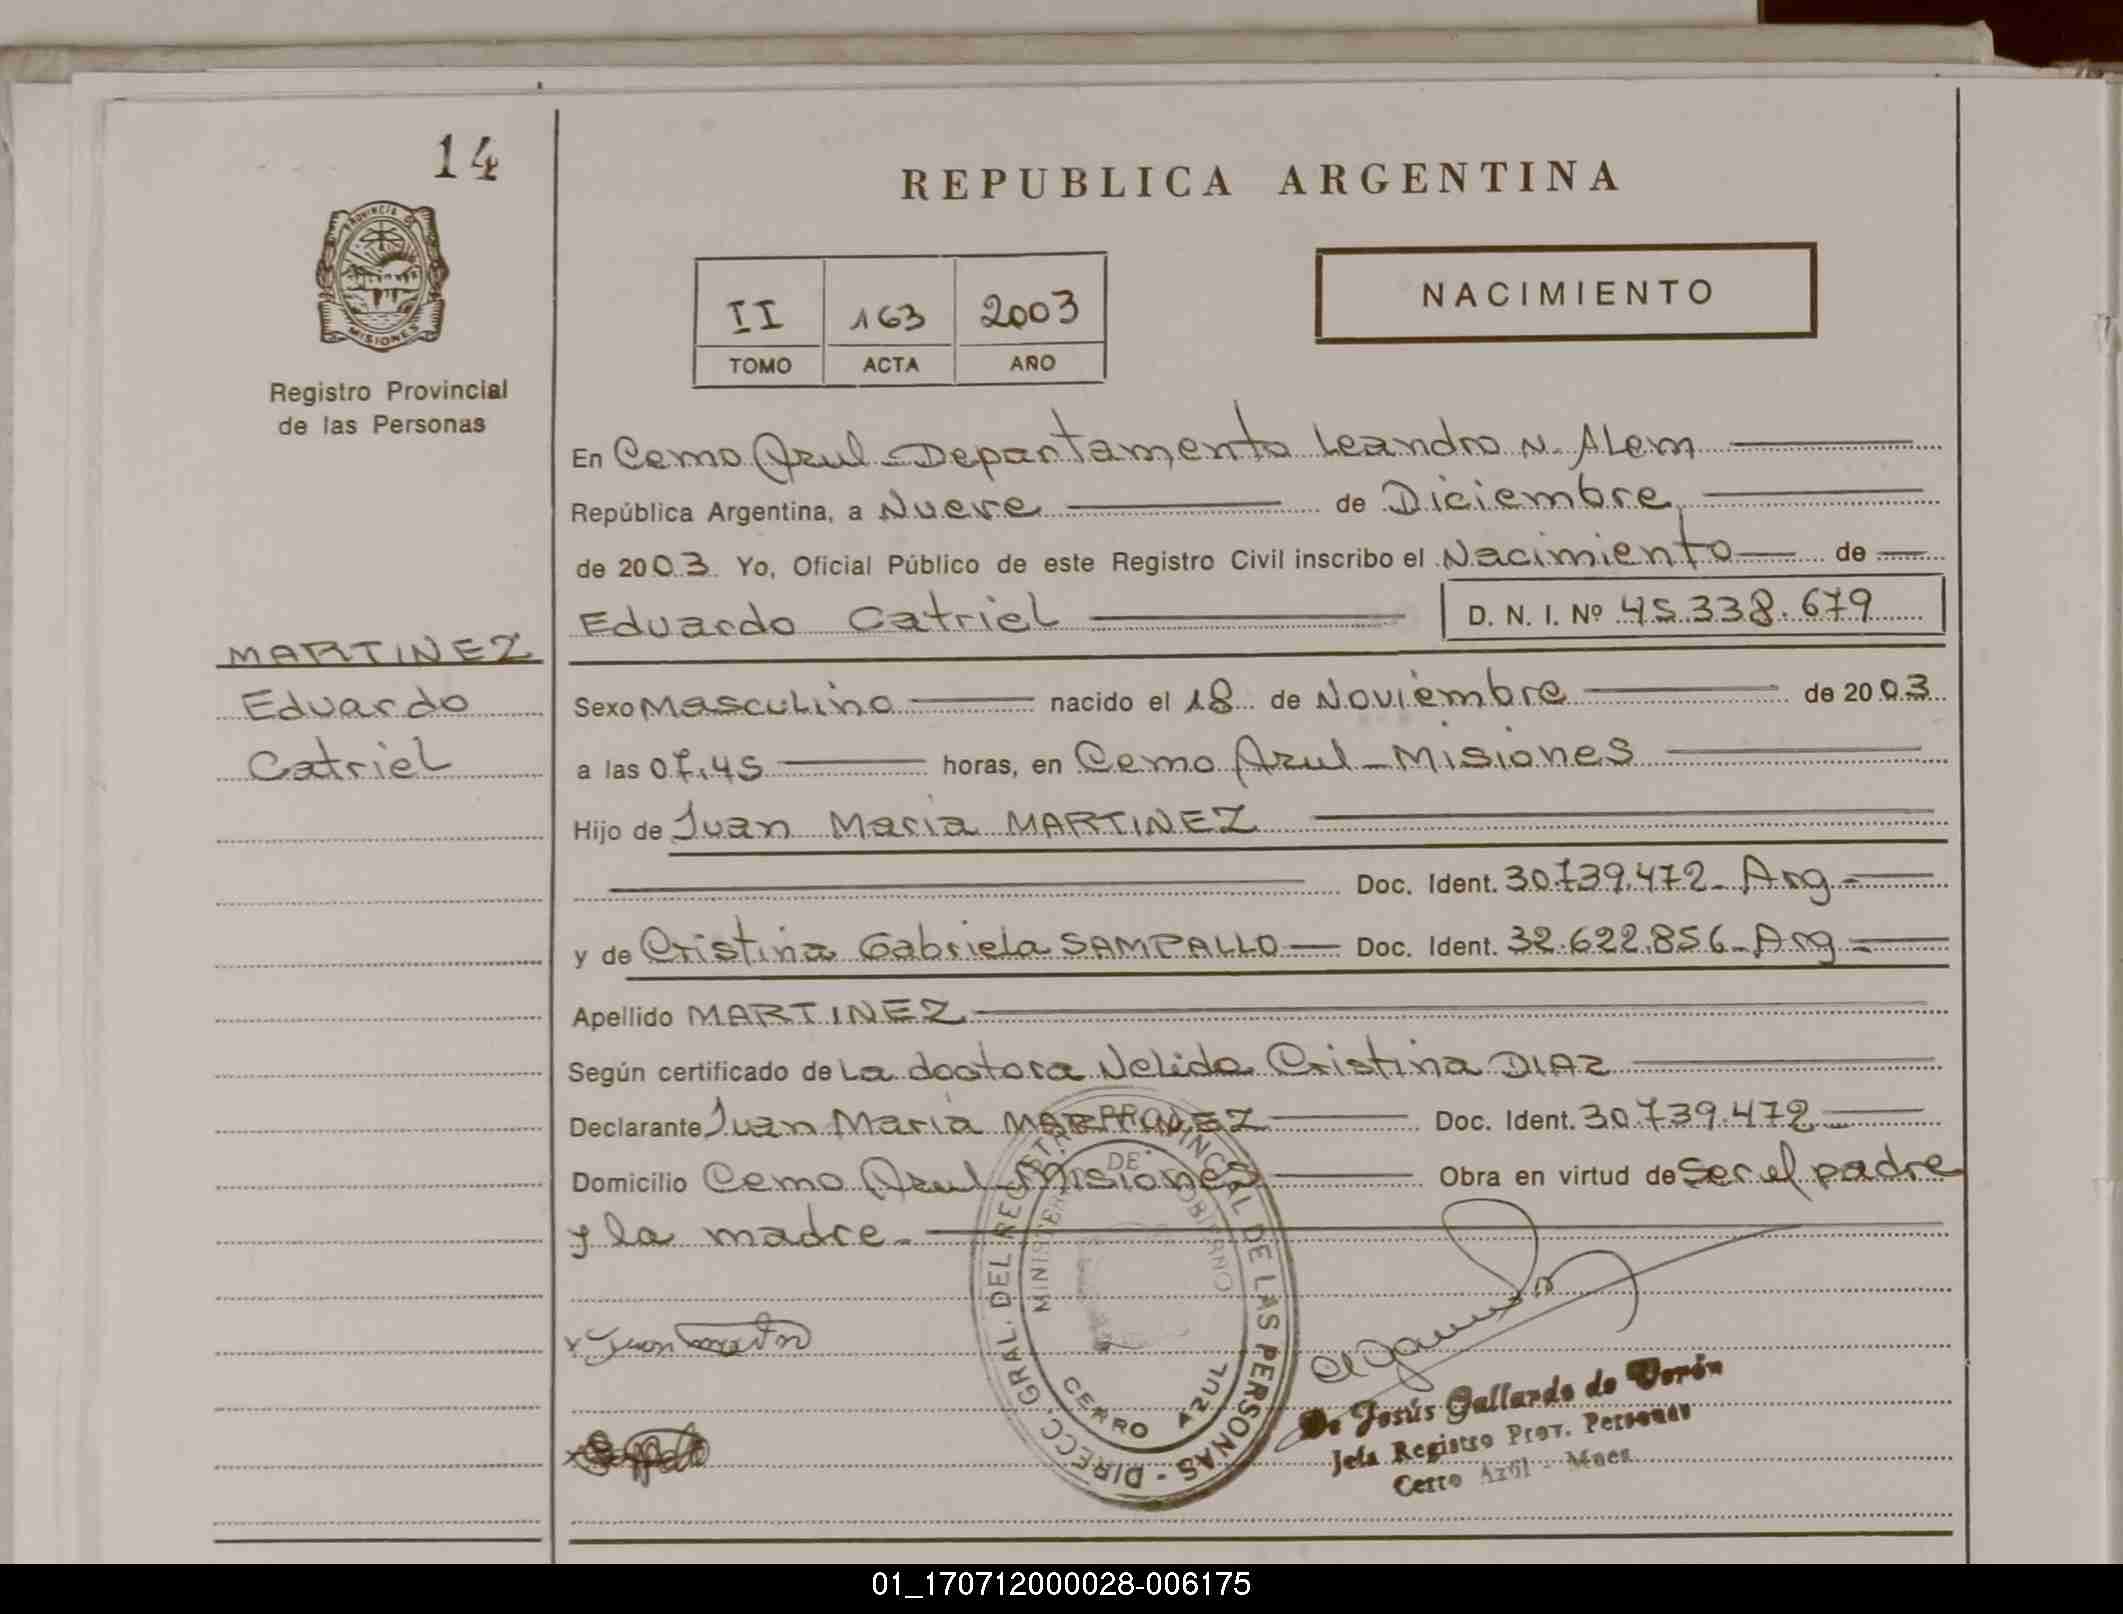 14
REPUBLICA ARGENTINA
PROVINCIA DE
MISIONES
NACIMIENTO
II 163 2003
TOMO ACTA AÑO
Registro Provincial
de las Personas
En Cerro Azul - Departamento Leandro N. ALem
República Argentina, a Nueve de Diciembre
de 2003 Yo, Oficial Público de este Registro Civil inscribo el Nacimiento de
Eduardo Catriel D. N. I. Nº 45.338.679
MARTINEZ
Eduardo
Catriel
Sexo Masculino nacido el 18 de Noviembre de 2003
a las 07,45 horas, en Cerro Azul - Misiones
Hijo de Juan Maria MARTINEZ
Doc. Ident. 30.739.472 - Arg -
y de Cristina Gabriela SAMPALLO Doc. Ident. 32.622.856 - Arg -
Apellido MARTINEZ
Según certificado de La doctora Nelida Cristina DIAZ
Declarante Juan Maria MARTINEZ Doc. Ident. 30.739.472
Domicilio Cerro Azul - Misiones Obra en virtud de Ser el padre
y la madre.-
DIRECC. GRAL. DEL REGISTRO PROVINCIAL DE LAS PERSONAS -
MINISTERIO DE GOBIERNO
CERRO AZUL
x Juan
De Jesús Gallardo de Verón
Jefa Registro Prov. Personas
Cerro Azul - Mnes
01_170712000028-006175